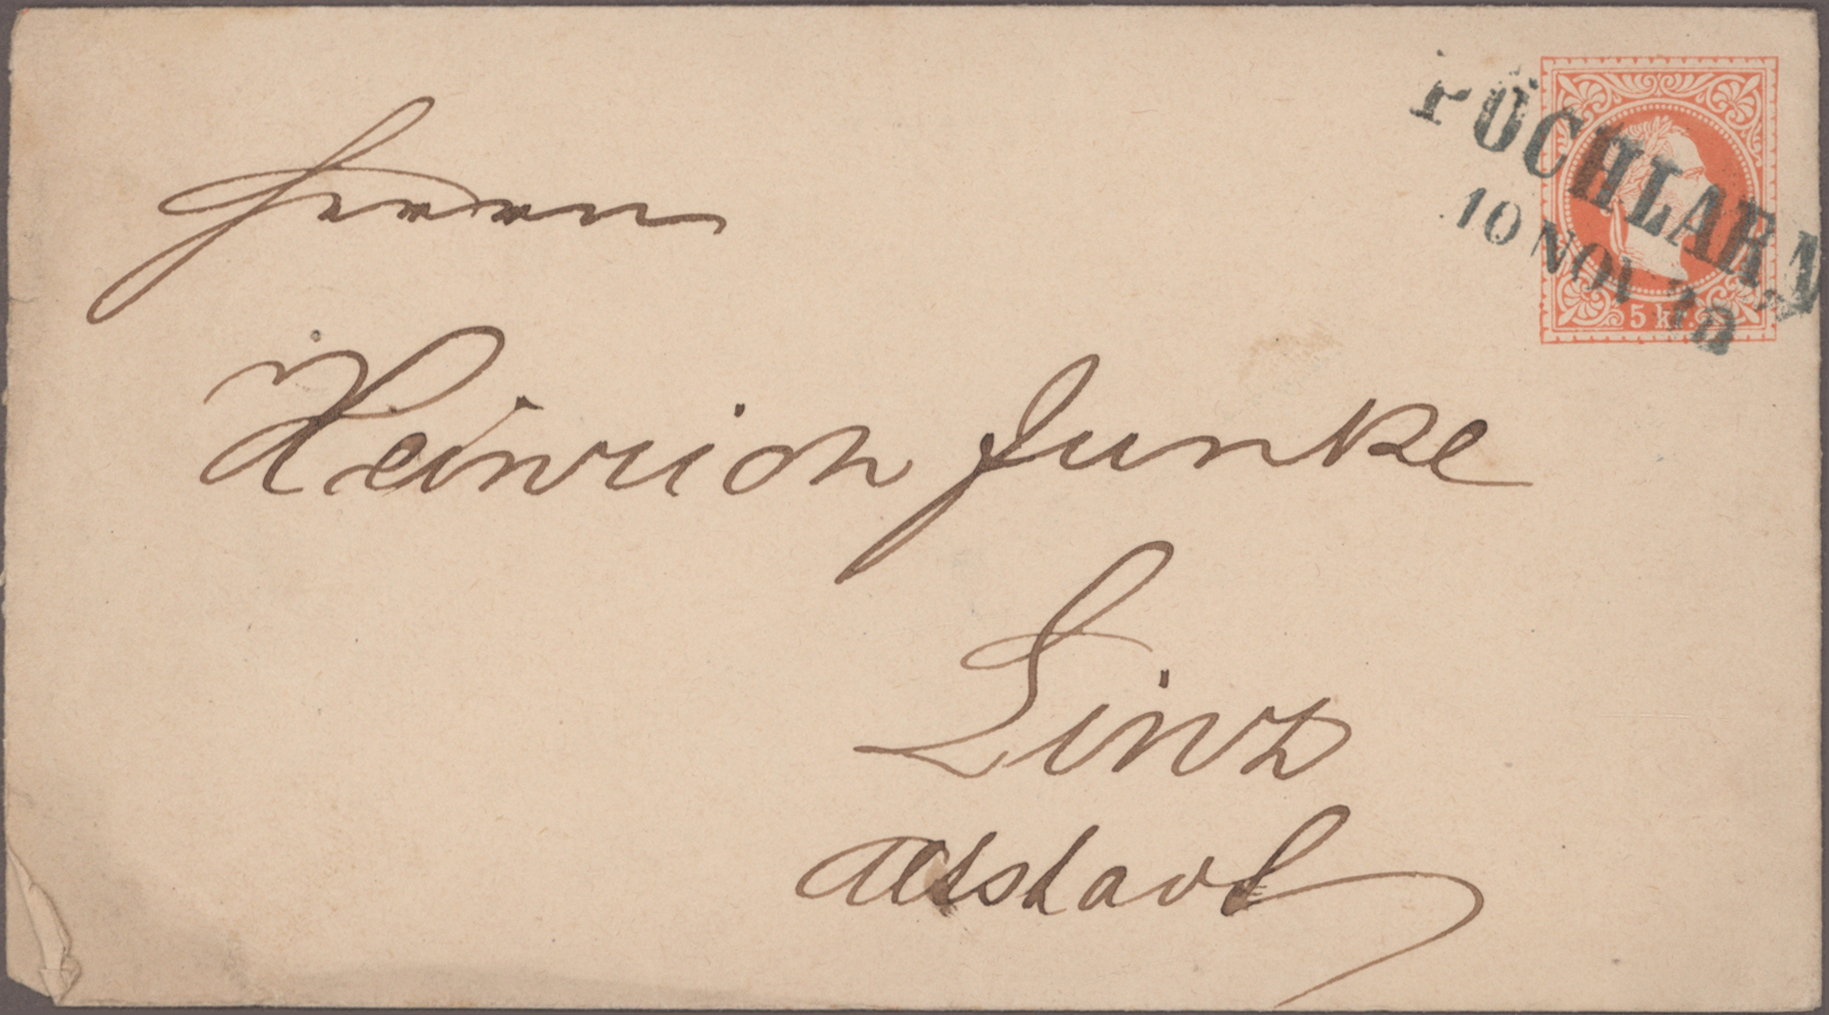 PÖCHLARN
10 NOV
5 kr.
Herrn
Heinrich Junke
Linz
Altstadt